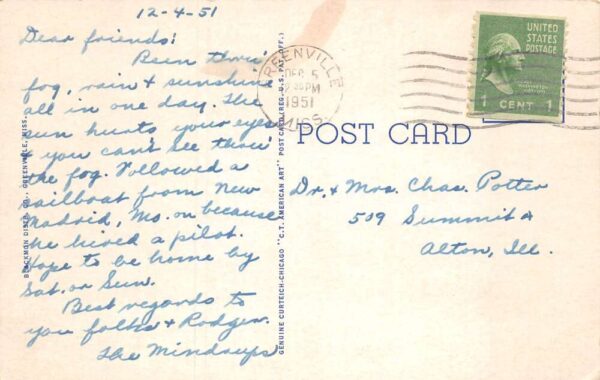 12-4-51
Dear friends:
Been thru'
fog, rain & sunshine
all in one day. The
sun hurts your eyes
& you can't see thru
the fog. Followed a
sailboat from New
Madrid, Mo. on because
he hired a pilot.
Hope to be home by
Sat. or Sun.
Best regards to
you folks & Rodger.
The Mindrups
BLACKMON DISTR. CO., GREENVILLE, MISS.
GENUINE CURTEICH-CHICAGO "C.T. AMERICAN ART" POST CARD (REG. U.S. PAT. OFF.)
GREENVILLE
DEC 5
PM
1951
MISS.
UNITED
STATES
POSTAGE
1 CENT 1
POST CARD
Dr. & Mrs. Chas. Potter
509 Summit
Alton, Ill.